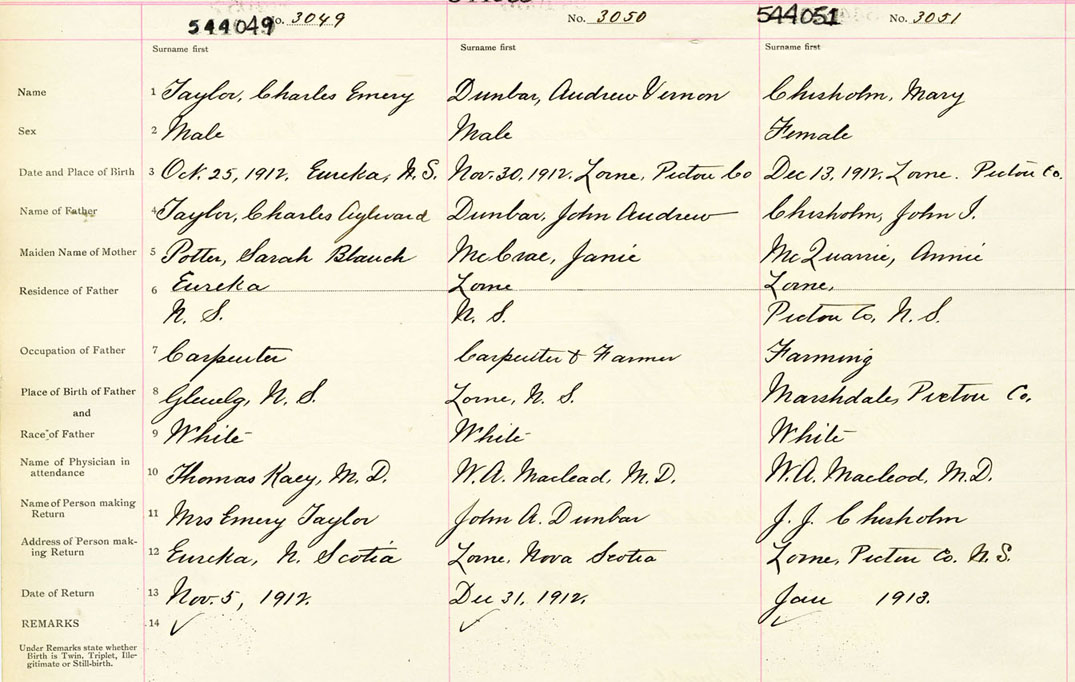 544049 No. 3049 No. 3050 544051 No. 3051
Surname first Surname first Surname first
Name 1 Taylor, Charles Emery Dunbar, Andrew Vernon Chisholm, Mary
Sex 2 Male Male Female
Date and Place of Birth 3 Oct. 25, 1912. Eureka, N.S. Nov. 30, 1912. Lorne, Pictou Co Dec 13, 1912. Lorne. Pictou Co.
Name of Father 4 Taylor, Charles Aylward Dunbar, John Andrew Chisholm, John J.
Maiden Name of Mother 5 Potter, Sarah Blanch McCrae, Janie McQuarrie, Annie
Residence of Father 6 Eureka Lorne Lorne,
N. S. N. S. Pictou Co, N. S.
Occupation of Father 7 Carpenter Carpenter & Farmer Farming
Place of Birth of Father 8 Glenelg, N. S. Lorne, N. S. Marshdale, Pictou Co.
and
Race of Father 9 White White White
Name of Physician in
attendance 10 Thomas M. D. W. A. Maclead, M. D. W. A. Macleod, M. D.
Name of Person making
Return 11 Mrs Emery Taylor John A. Dunbar J. J. Chisholm
Address of Person mak-
ing Return 12 Eureka, N. Scotia Lorne, Nova Scotia Lorne, Pictou Co. N. S.
Date of Return 13 Nov. 5, 1912. Dec 31, 1912. Jan 1913.
REMARKS 14 ✓ ✓ ✓
Under Remarks state whether
Birth is Twin, Triplet, Ille-
gitimate or Still-birth.